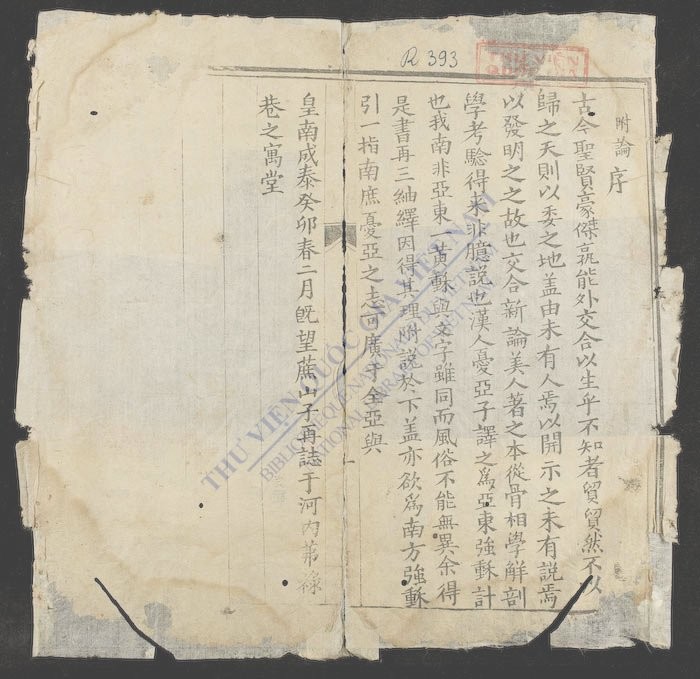 R 393
附論 序
古今聖賢豪傑孰能外交合以生乎不知者貿貿然不以
歸之天則以委之地盖由未有人焉以開示之未有説焉
以發明之之故也交合新論美人著之本從骨相學解剖
學考驗得来非臆説也漢人憂亞子譯之爲亞東強蘇計
也我南非亞東一黄蘇與文字雖同而風俗不能無異余得
是書再三紬繹因得其理附説於下盖亦欲爲南方強蘇
引一指南庶憂亞之志可廣于全亞與
皇南成泰癸卯春二月既望蔗山子再誌于河内第祿
巷之寓堂
THƯ VIỆN QUỐC GIA VIỆT NAM
BIBLIOTHEQUE NATIONALE DU VIETNAM
NATIONAL LIBRARY OF VIETNAM